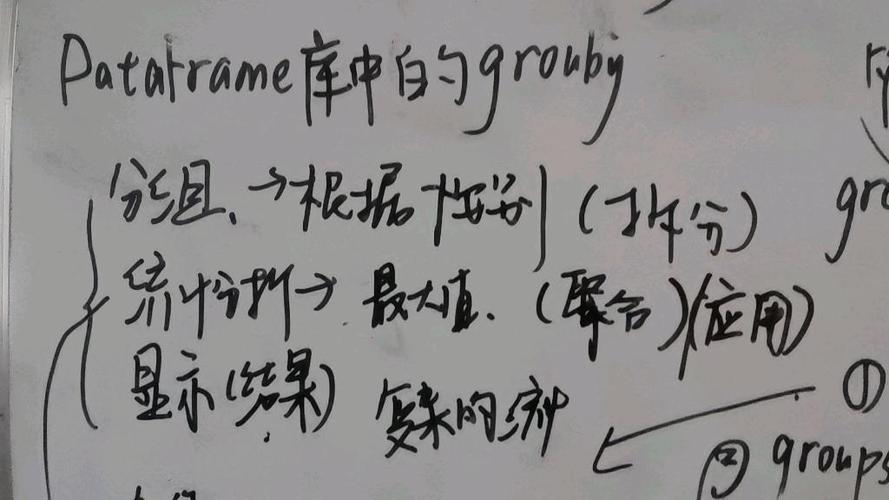 Dataframe库中的grouby
分组、→根据性别(拆分)
统计分析→最大值、(聚合)(应用)
显示(结果) 复杂的统计
①
② groups